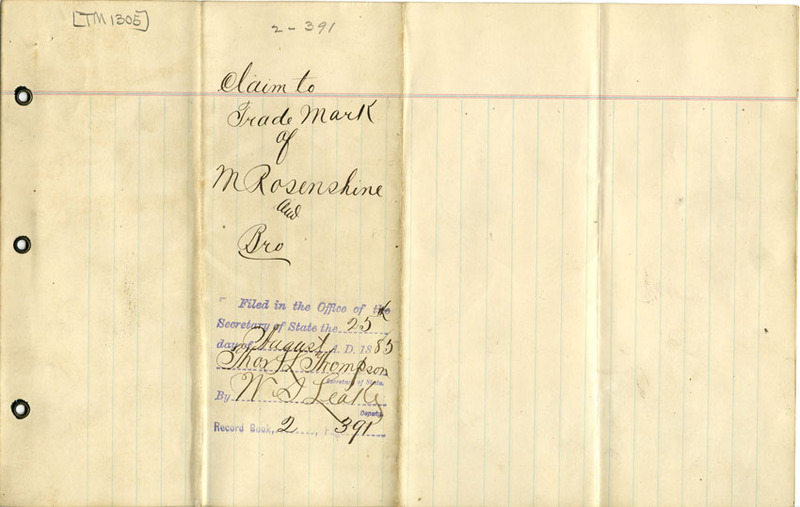 [TM 1305]
2-391
Claim to
Trade Mark
of
M Rosenshine
and
Bro
Filed in the Office of the
Secretary of State the 25th
day of August A. D. 1885
Thos L Thompson
Secretary of State.
By W. J. Leake
Deputy.
Record Book, 2 391